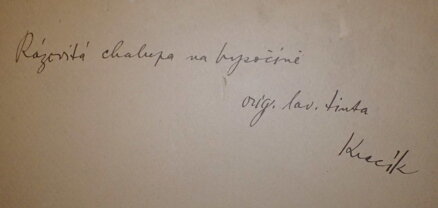 Rázovitá chalupa na Vysočině
orig. lav. tinta